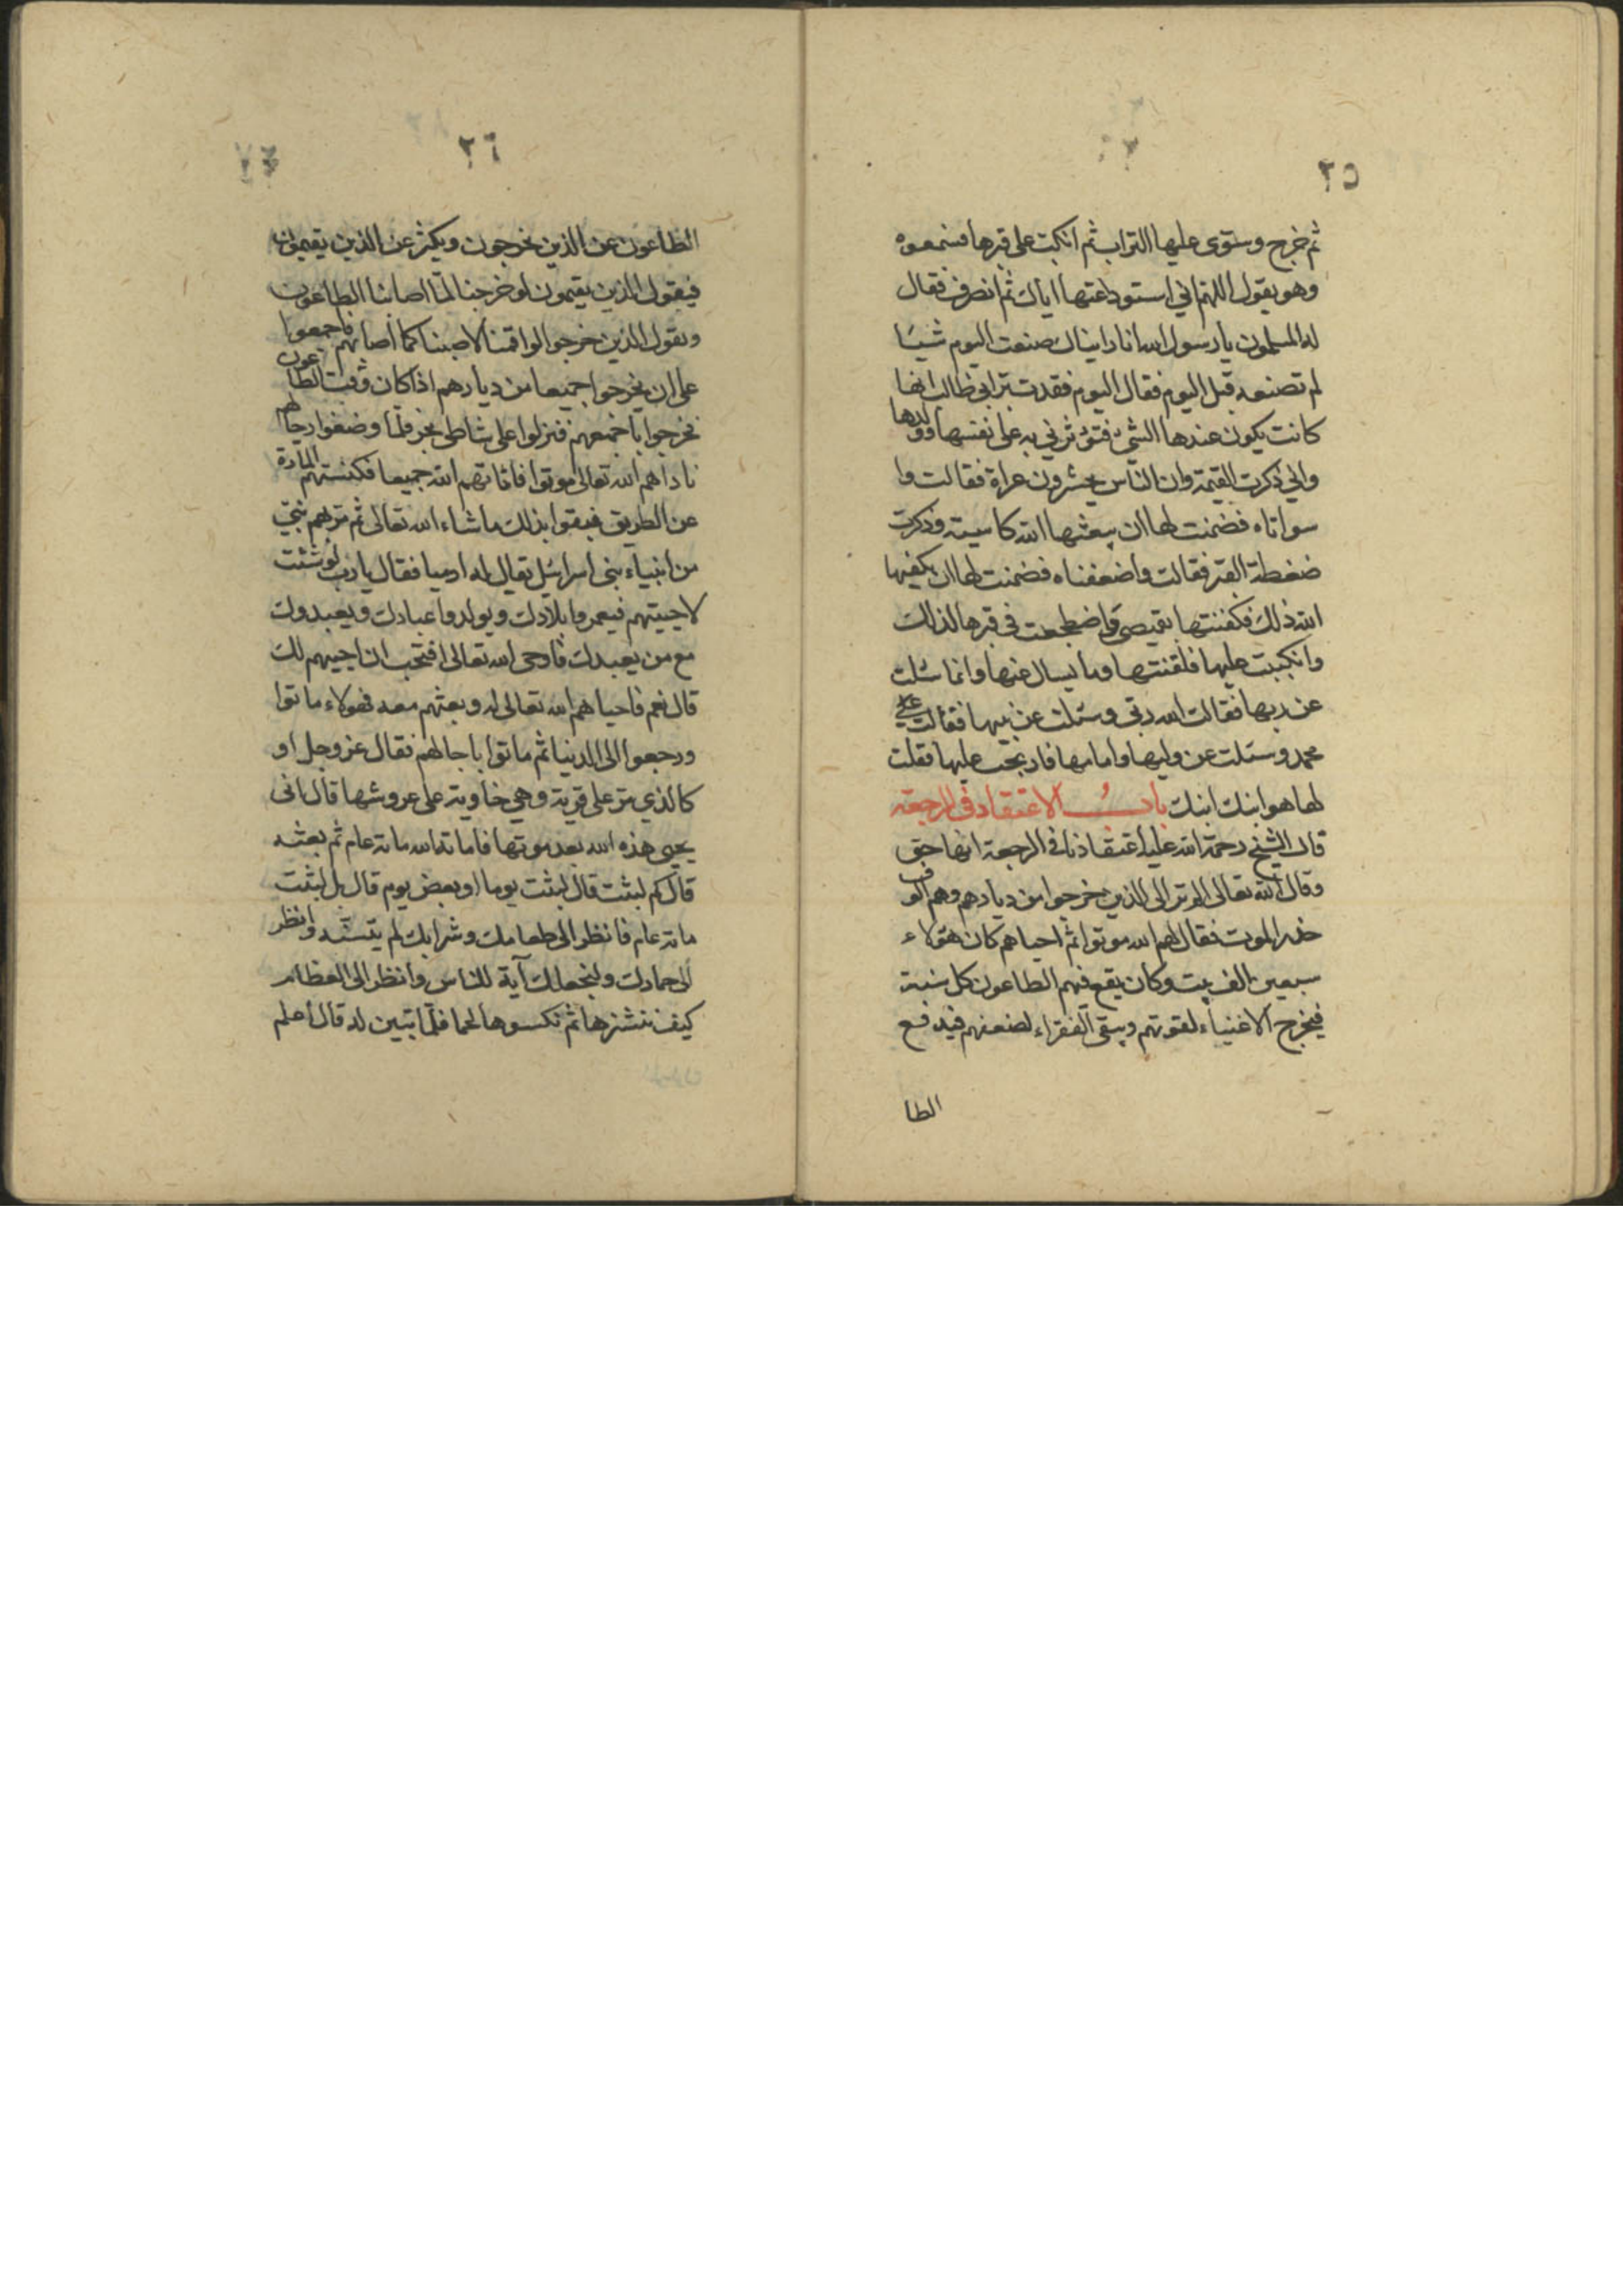 ٢٥
ثم خرج وسوى عليها التراب ثم انكب على قبرها فسمعوه
وهو يقول اللهم اني استودعتها اياك ثم انصرف فقال
له المسلمون يا رسول الله انا رايناك صنعت اليوم شيئا
لم تصنعه قبل اليوم فقال اليوم فقدت بر ابي طالب انها
كانت يكون عندها الشئ فتؤثرني به على نفسها وولدها
واني ذكرت القيمة وان الناس يحشرون عراة فقالت وا
سواتاه فضمنت لها ان يبعثها الله كاسية وذكرت
ضغطة القبر فقالت واضعفاه فضمنت لها ان يكفيها
الله ذلك فكفنتها بقميصي واضطجعت في قبرها لذلك
وانكببت عليها فلقنتها وما يسال عنها وانما سئلت
عن ربها فقالت الله ربي وسئلت عن نبيها فقالت
محمد وسئلت عن وليها وامامها فارتج عليها فقلت
لها هو ابنك ابنك باب الاعتقاد في الرجعة
قال الشيخ رحمة الله عليه اعتقادنا في الرجعة انها حق
وقال الله تعالى الم تر الى الذين خرجوا من ديارهم وهم الوف
حذر الموت فقال لهم الله موتوا ثم احياهم كان هؤلاء
سبعين الف بيت وكان يقع فيهم الطاعون كل سنة
فيخرج الاغنياء لقوتهم ويبقى الفقراء لضعفهم فيدفع
الطا
٢٦
الطاعون عن الذين يخرجون ويكثر عن الذين يقيمون
فيقول الذين يقيمون لو خرجنا لما اصابنا الطاعون
ويقول الذين خرجوا لو اقمنا لاصبنا كما اصابهم فاجمعوا
على ان يخرجوا جميعا من ديارهم اذا كان وقت الطاعون
فخرجوا باجمعهم فنزلوا على شاطئ بحر فلما وضعوا رحالهم
ناداهم الله تعالى موتوا فاماتهم الله جميعا فكنستهم المارة
عن الطريق فبقوا بذلك ما شاء الله تعالى ثم مر بهم نبي
من انبياء بني اسرائيل يقال له ارميا فقال يا رب لو شئت
لاحييتهم فيعمروا بلادك ويولدوا عبادك ويعبدوك
مع من يعبدك فاوحى الله تعالى افتحب ان احييهم لك
قال نعم فاحياهم الله تعالى له وبعثهم معه فهولاء ماتوا
ورجعوا الى الدنيا ثم ماتوا باجالهم فقال عز وجل او
كالذي مر على قرية وهي خاوية على عروشها قال انى
يحيى هذه الله بعد موتها فاماته الله مائة عام ثم بعثه
قال كم لبثت قال لبثت يوما او بعض يوم قال بل لبثت
مائة عام فانظر الى طعامك وشرابك لم يتسنه وانظر
الى حمارك ولنجعلك آية للناس وانظر الى العظام
كيف ننشزها ثم نكسوها لحما فلما تبين له قال اعلم